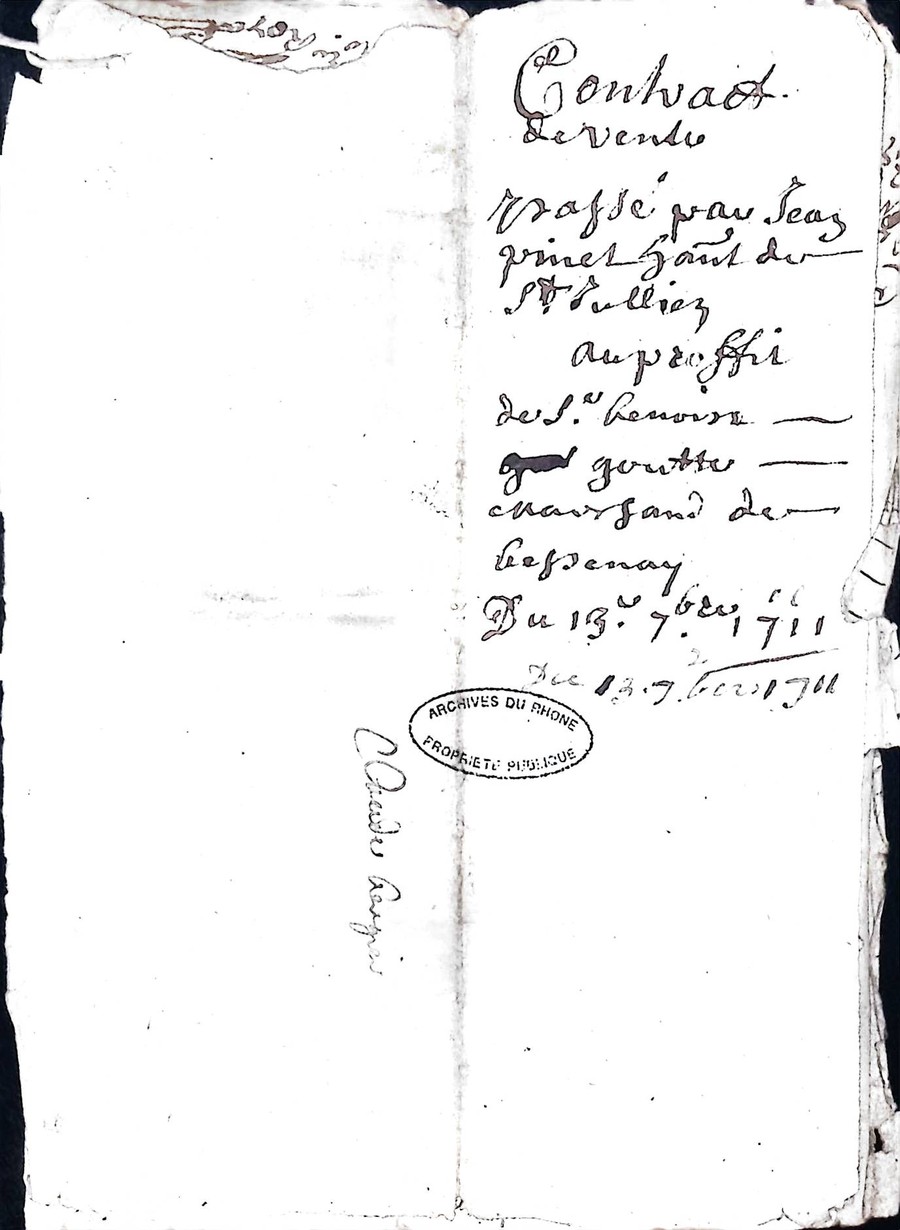 Contract
de vente
passé par Jean
pinet habt de
St Jullien
au proffit
de Sr. benoist
goutte
marchand de
bessenay
Du 13e. 7bre 1711
Du 13. 7bre 1711
ARCHIVES DU RHONE
PROPRIETE PUBLIQUE
Claude